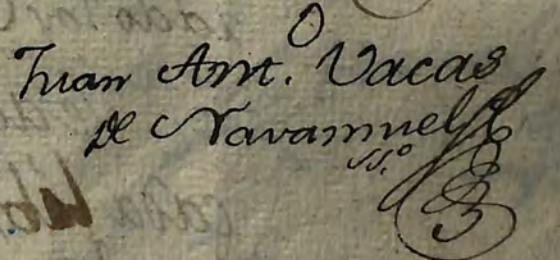 Juan Ant.º Vacas
de Navamuel
ss.º